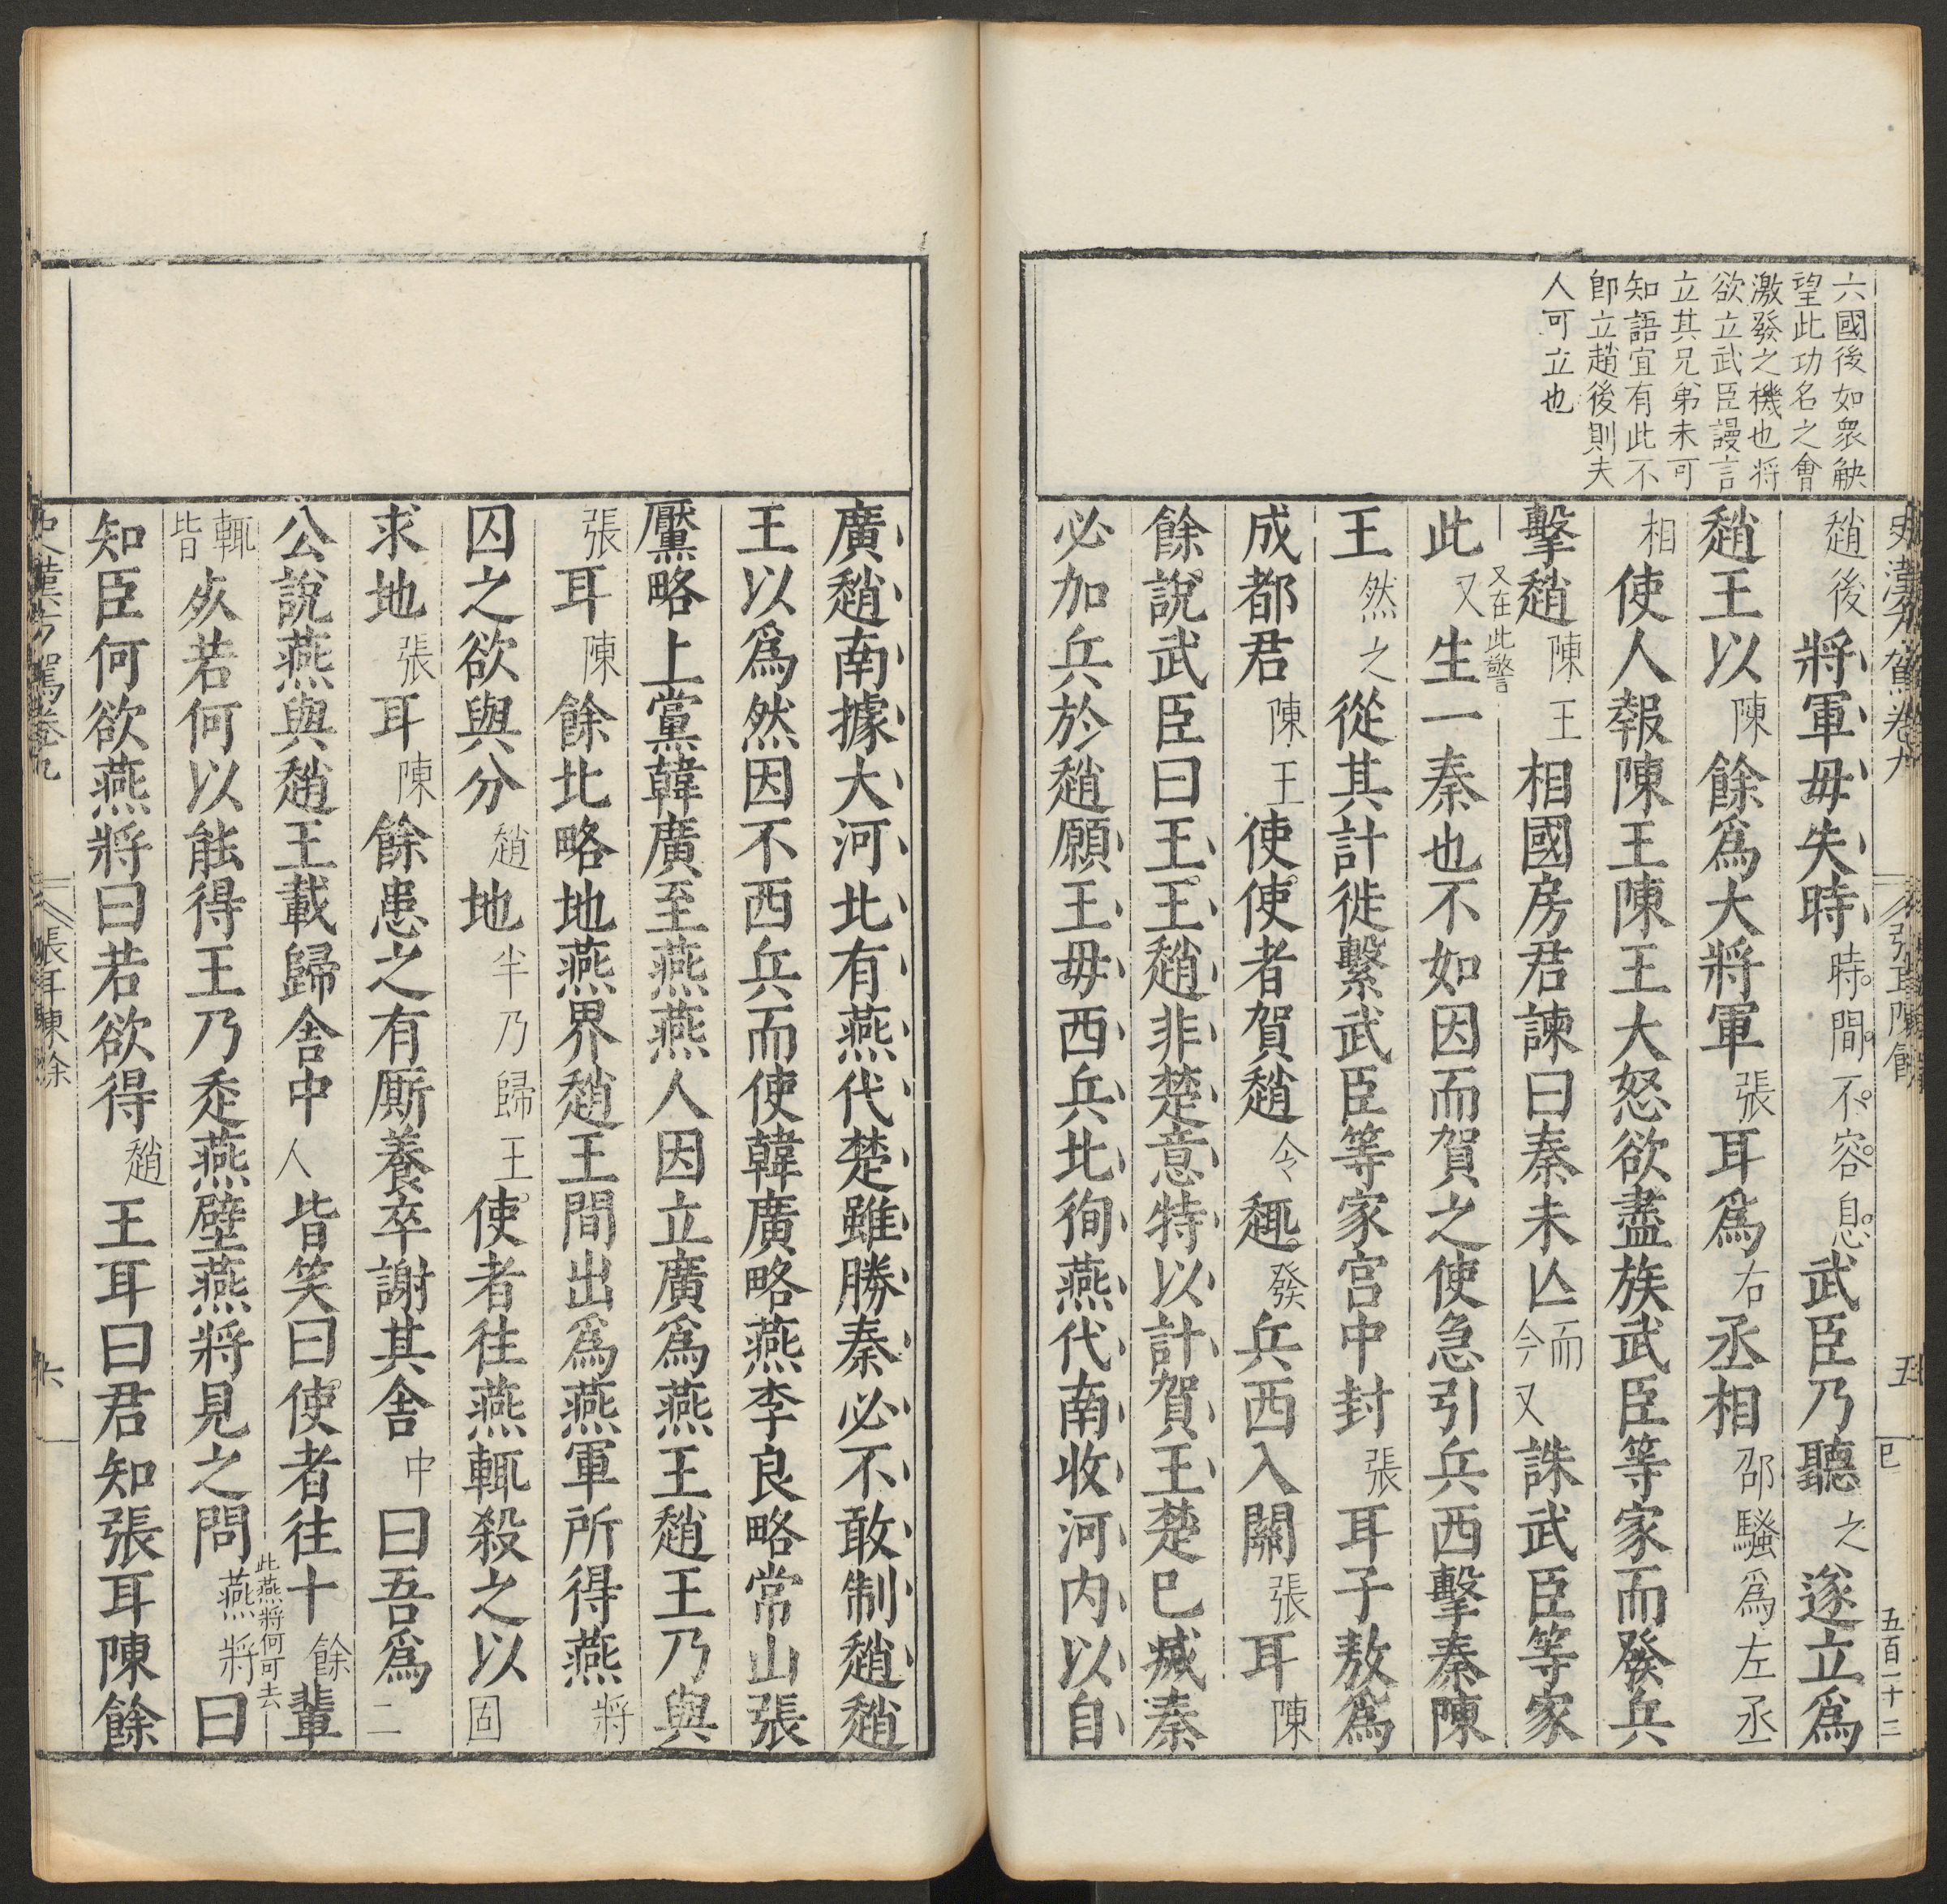 史漢方駕卷九 張耳陳餘 五 五百一十三
六國後如衆觖
望此功名之會
激發之機也將
欲立武臣謾言
立其兄弟未可
知語宜有此不
即立趙後則夫
人可立也
趙後將軍毋失時時間不容息武臣乃聽之遂立爲
趙王以陳餘爲大將軍張耳爲右丞相邵騷爲左丞
相使人報陳王陳王大怒欲盡族武臣等家而發兵
擊趙陳王相國房君諫曰秦未亾而今又誅武臣等家
又在此警
此又生一秦也不如因而賀之使急引兵西擊秦陳
王然之從其計徙繫武臣等家宫中封張耳子敖爲
成都君陳王使使者賀趙令趣發兵西入關張耳陳
餘說武臣曰王王趙非楚意特以計賀王楚已滅秦
必加兵於趙願王毋西兵北徇燕代南收河内以自
廣趙南據大河北有燕代楚雖勝秦必不敢制趙趙
王以爲然因不西兵而使韓廣略燕李良略常山張
黶略上黨韓廣至燕燕人因立廣爲燕王趙王乃與
張耳陳餘北略地燕界趙王間出爲燕軍所得燕將
囚之欲與分趙地半乃歸王使者往燕輒殺之以固
求地張耳陳餘患之有厮養卒謝其舍中曰吾爲二
公說燕與趙王載歸舍中人皆笑曰使者往十餘輩
輒皆死若何以能得王乃走燕壁燕將見之問燕將曰
此燕將何可去
知臣何欲燕將曰若欲得趙王耳曰君知張耳陳餘
史漢方駕卷九 張耳陳餘 六